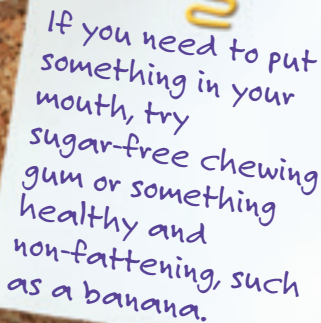 If you need to put
something in your
mouth, try
sugar-free chewing
gum or something
healthy and
non-fattening, such
as a banana.